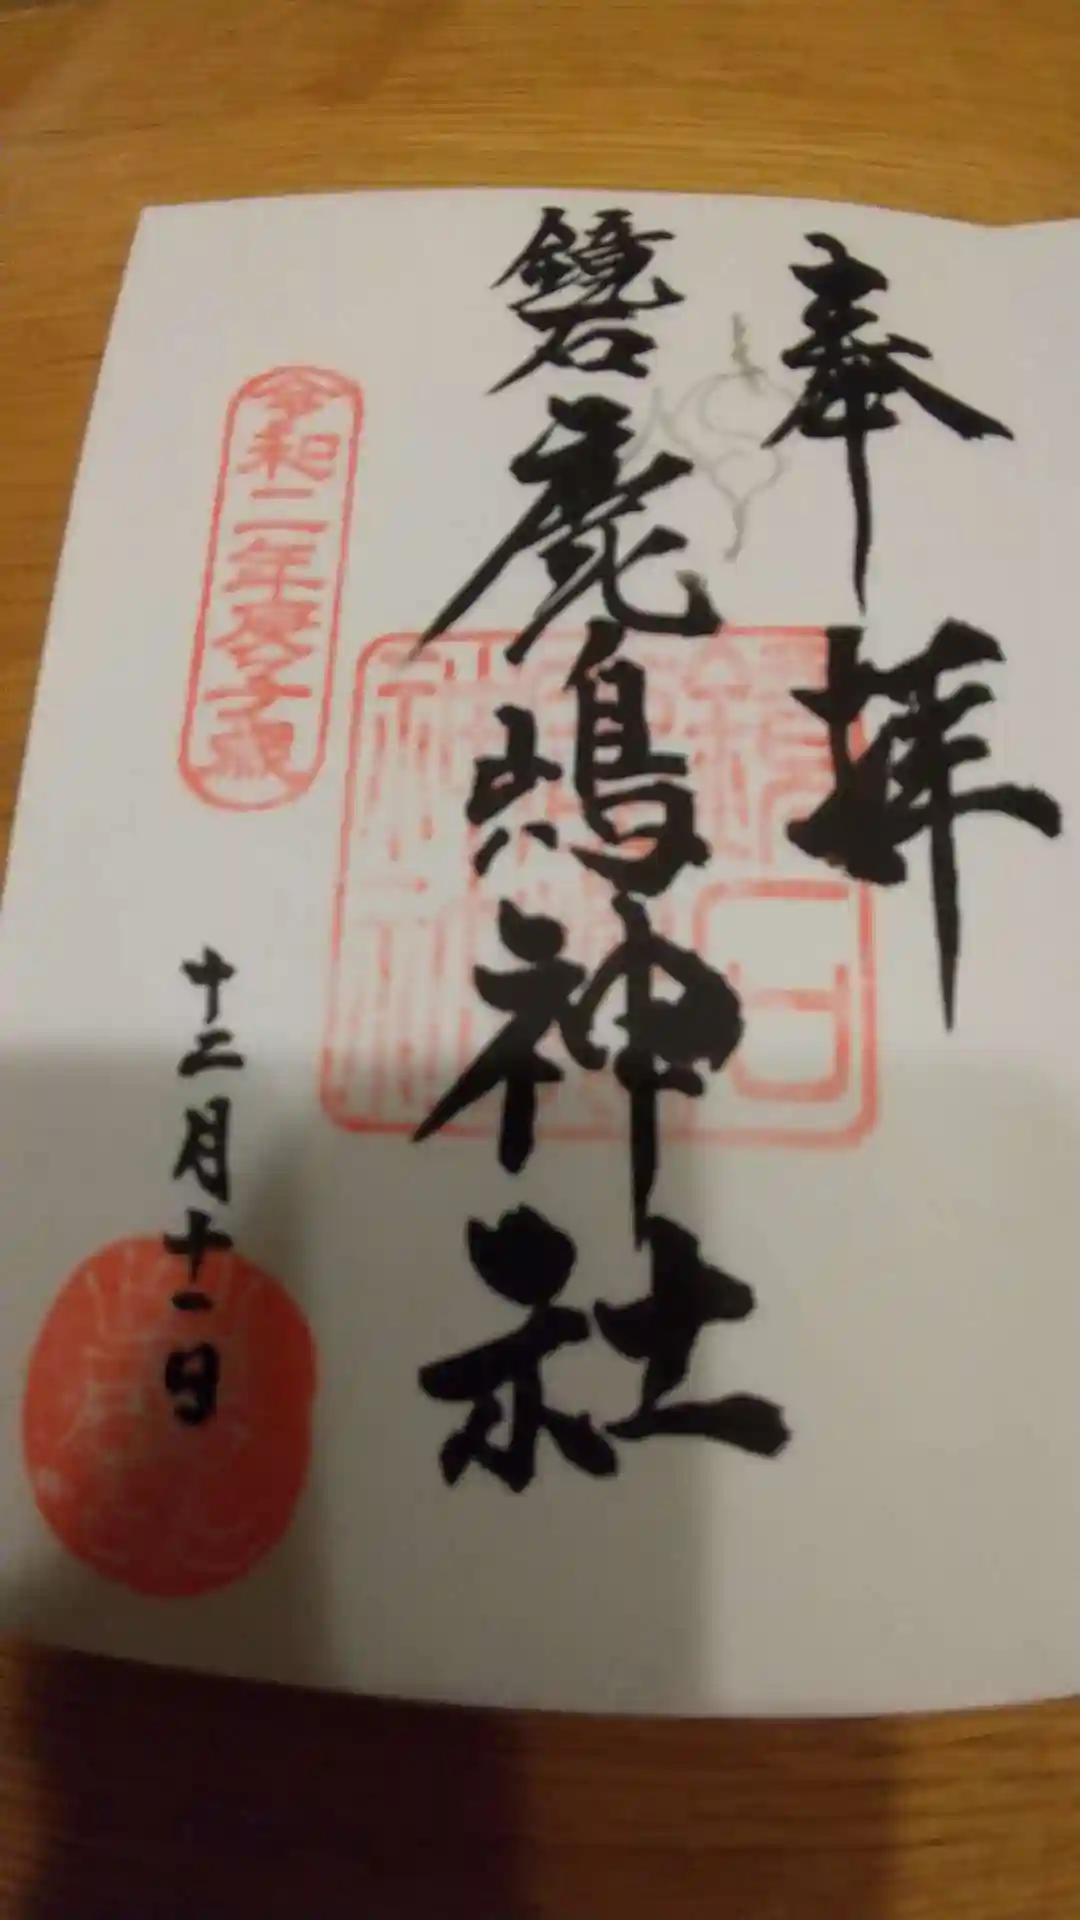 奉拝
鏡石鹿嶋神社
令和二年庚子歳
十二月十一日